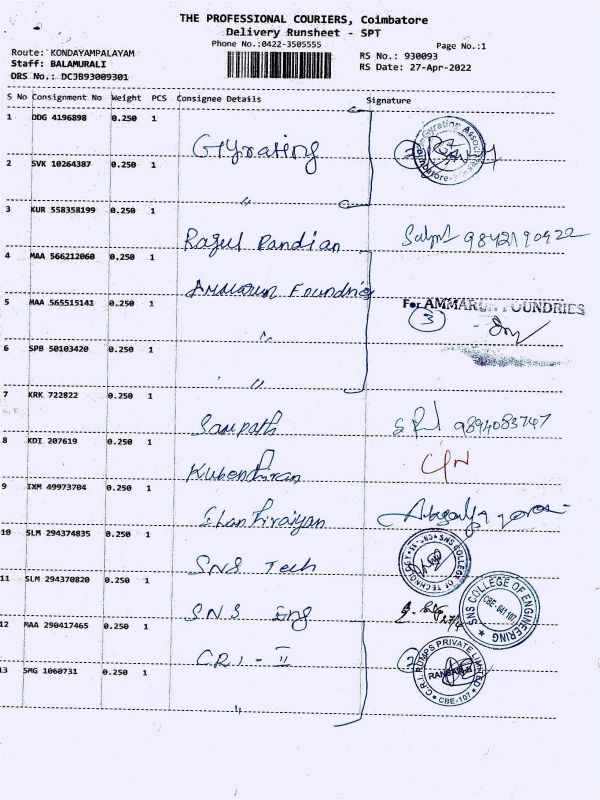 THE PROFESSIONAL COURIERS, Coimbatore
Delivery Runsheet - SPT
Phone No.:0422-3505555
Page No.:1
Route: KONDAYAMPALAYAM
Staff: BALAMURALI
DRS No.: DCJB93009301
RS No.: 930093
RS Date: 27-Apr-2022
S No Consignment No Weight PCS Consignee Details Signature
1 DDG 4196898 0.250 1
Gyrating
2 SVK 10264387 0.250 1
"
3 KUR 558358199 0.250 1
Ragul Pandian 9842190922
4 MAA 566212060 0.250 1
Ammarun Foundries
5 MAA 565515141 0.250 1
For AMMARUN FOUNDRIES
3
"
6 SPB 50103420 0.250 1
"
7 KRK 722822 0.250 1
Sampath 9894083747
8 KDI 207619 0.250 1
9 IXM 49973704 0.250 1
10 SLM 294374835 0.250 1
SNS Tech
SNS COLLEGE OF TECHNOLOGY
11 SLM 294370820 0.250 1
SNS Eng
SNS COLLEGE OF ENGINEERING
CBE-641 107
12 MAA 290417465 0.250 1
C.R.I - II
2
C.R.I. PUMPS PRIVATE LIMITED
CBE-107
13 SMG 1060731 0.250 1
"